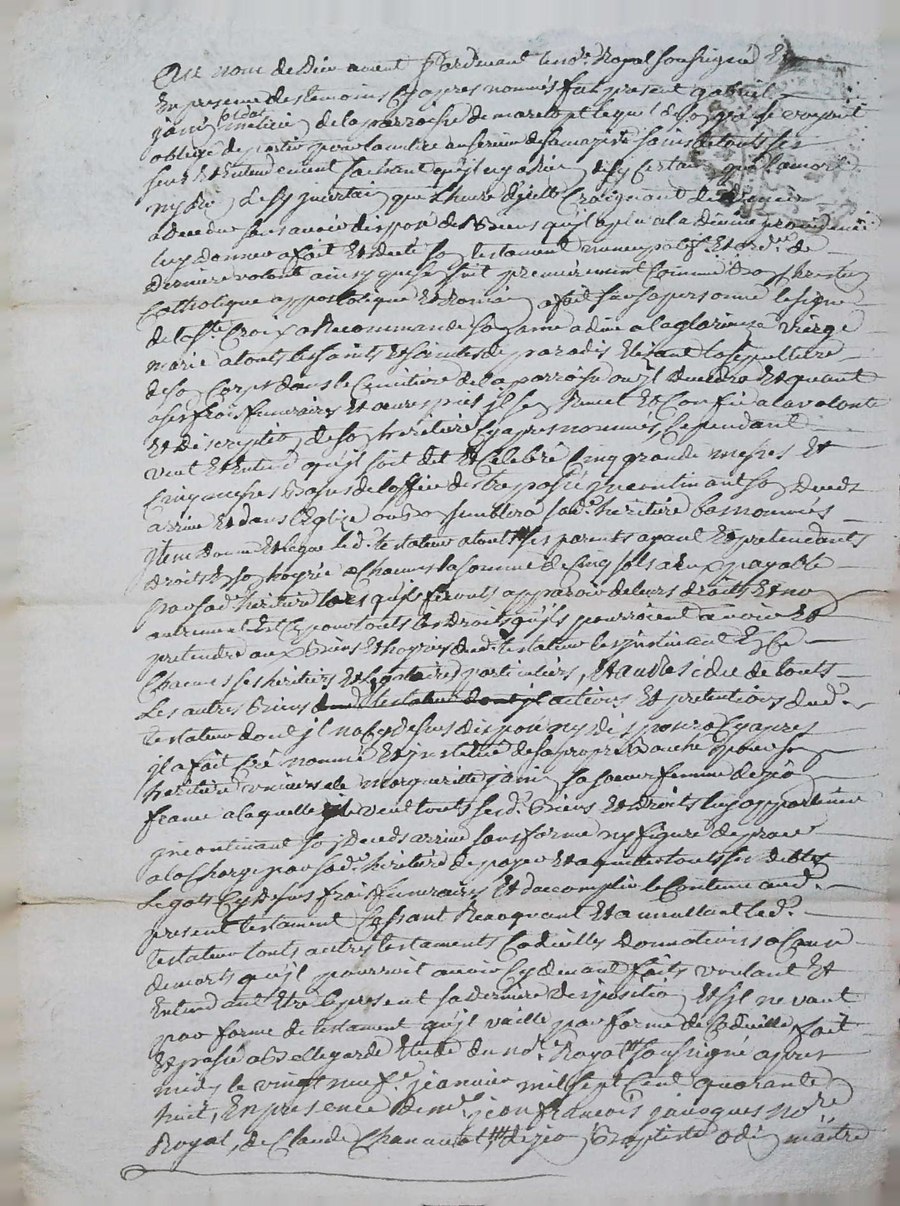 Au nom de Dieu amen Pardevant le no.re Royal soussigné Et
En presence des temoins Cy apres nommés fut present gabriel
janin soldat milicien de la parroisse de marclopt lequel de so gré se voyant
obligé de partir pour la milice au service de sa majesté sain de touts ses
sens Et Entendement sachant qu'il n'y a rien de si Certain que la mort
ny rien de sy jncertain que l'heure d'jcelle Craignant de
a decedue sans avoir disposé des Biens qu'il a plu a la divine providence
luy donner a fait Et dicté so testament nuncupatif Et ord.re de
derniere volonté ainsy que s'Ensuit premierement Comme Bo Chrestien
Catholique appostolique Et Romain a fait sur sa personne le signe
de la S.te Croix a Recommandé so ame a dieu a la glorieuse vierge
marie a touts les saints Et saintes de paradis Elisant la sepulture
de so Corps dans le Cimetiere de la parroisse ou jl decedra Et quant
a ses frais funeraires Et œuvres pies jl se Remet Et Confie a la volonté
Et discretio de so heritiere Cy apres nommée, Cependant
veut Et Entend qu'jl soit dit Et Celebré Cinq grandes messes Et
Cinq messes Basses de l'office des trepassés jncontinant so Deceds
arrivé Et dans l'Eglise ou Bo semblera sad.e heritiere bas nommée
jtem donne Et legue led. testateur a touts ses parents ayant Et pretendants
droits En so hoyrie a Chacun la somme de Cinq sols a Eux payable
par sad.e heritiere lors qu'jls feront apparoir de leurs droits Et no
autrement Et Ce pour touts les droits qu'ils pourroient avoir Et
pretendre aux Biens Et hoyrie dud. testateur les jnstituant En Ce
Chacuns ses heritiers Et legataires particuliers, Et au Residu de touts
Les autres Biens actions Et pretentions dud.
testateur dont jl n'a Cy dessus disposé ny disposera Cy apres
jl a fait Créé nommé Et jnstitué de sa propre Bouche pour so
heritiere universelle margueritte janin sa soeur femme de jea
france a laquelle veut touts sesd. Biens Et droits luy appartenir
jncontinant so Deceds arrivé sans forme ny figure de procés
a la Charge par sad.e heritiere de payer Et acquitter touts ses debtes
Legats Cy dessus frais funeraires Et d'accomplir le Contenu aud.
present testament Cassant Revoquant Et annullant led.
testateur touts autres testaments Codicilles Donnations a Cause
de morts qu'jl pourroit avoir Cy devant faits voulant Et
Entendant Etre le present sa derniere disposition Et s'jl ne vaut
par forme de testament qu'jl vaille par forme de Codicille fait
Et passé a Bellegarde Etude du no.re Royal soussigné apres
midy le vingt neuf.e jeanvier mil sept Cent quarante
huit, En presence de m.e jean francois javogues no.re
Royal, de Claude de jea Baptiste odi maitre